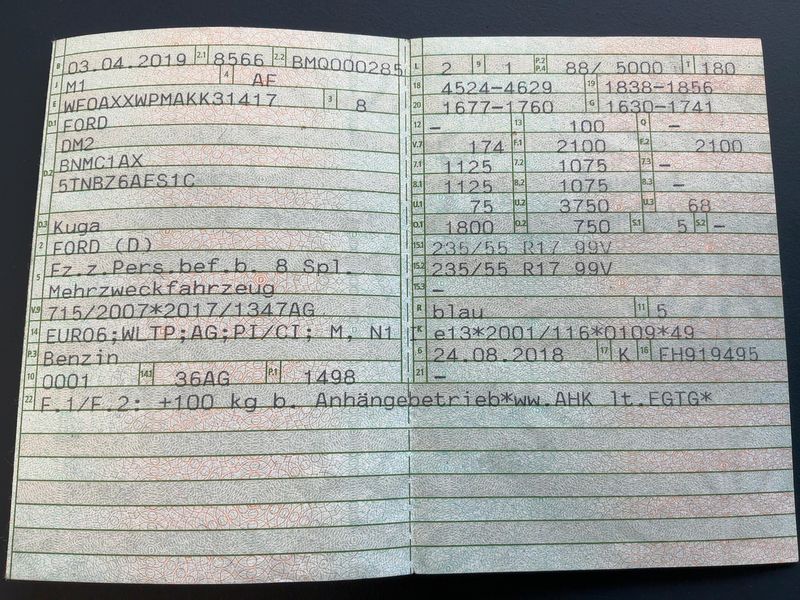 B 03.04.2019 2.1 8566 2.2 BMQ000285
J M1 4 AF
E WF0AXXWPMAKK31417 3 8
D.1 FORD
DM2
D.2 BNMC1AX
5TNBZ6AFS1C
D.3 Kuga
2 FORD (D)
5 Fz.z.Pers.bef.b. 8 Spl.
Mehrzweckfahrzeug
V.9 715/2007*2017/1347AG
14 EURO6;WLTP;AG;PI/CI; M, N1 I
P.3 Benzin
10 0001 14.1 36AG P.1 1498
L 2 9 1 P.2 P.4 88/ 5000 T 180
18 4524-4629 19 1838-1856
20 1677-1760 G 1630-1741
12 - 13 100 Q -
V.7 174 F.1 2100 F.2 2100
7.1 1125 7.2 1075 7.3 -
8.1 1125 8.2 1075 8.3 -
U.1 75 U.2 3750 U.3 68
O.1 1800 O.2 750 S.1 5 S.2 -
15.1 235/55 R17 99V
15.2 235/55 R17 99V
15.3 -
R blau 11 5
K e13*2001/116*0109*49
6 24.08.2018 17 K 16 FH919495
21 -
22 F.1/F.2: +100 kg b. Anhängebetrieb*ww.AHK lt.EGTG*